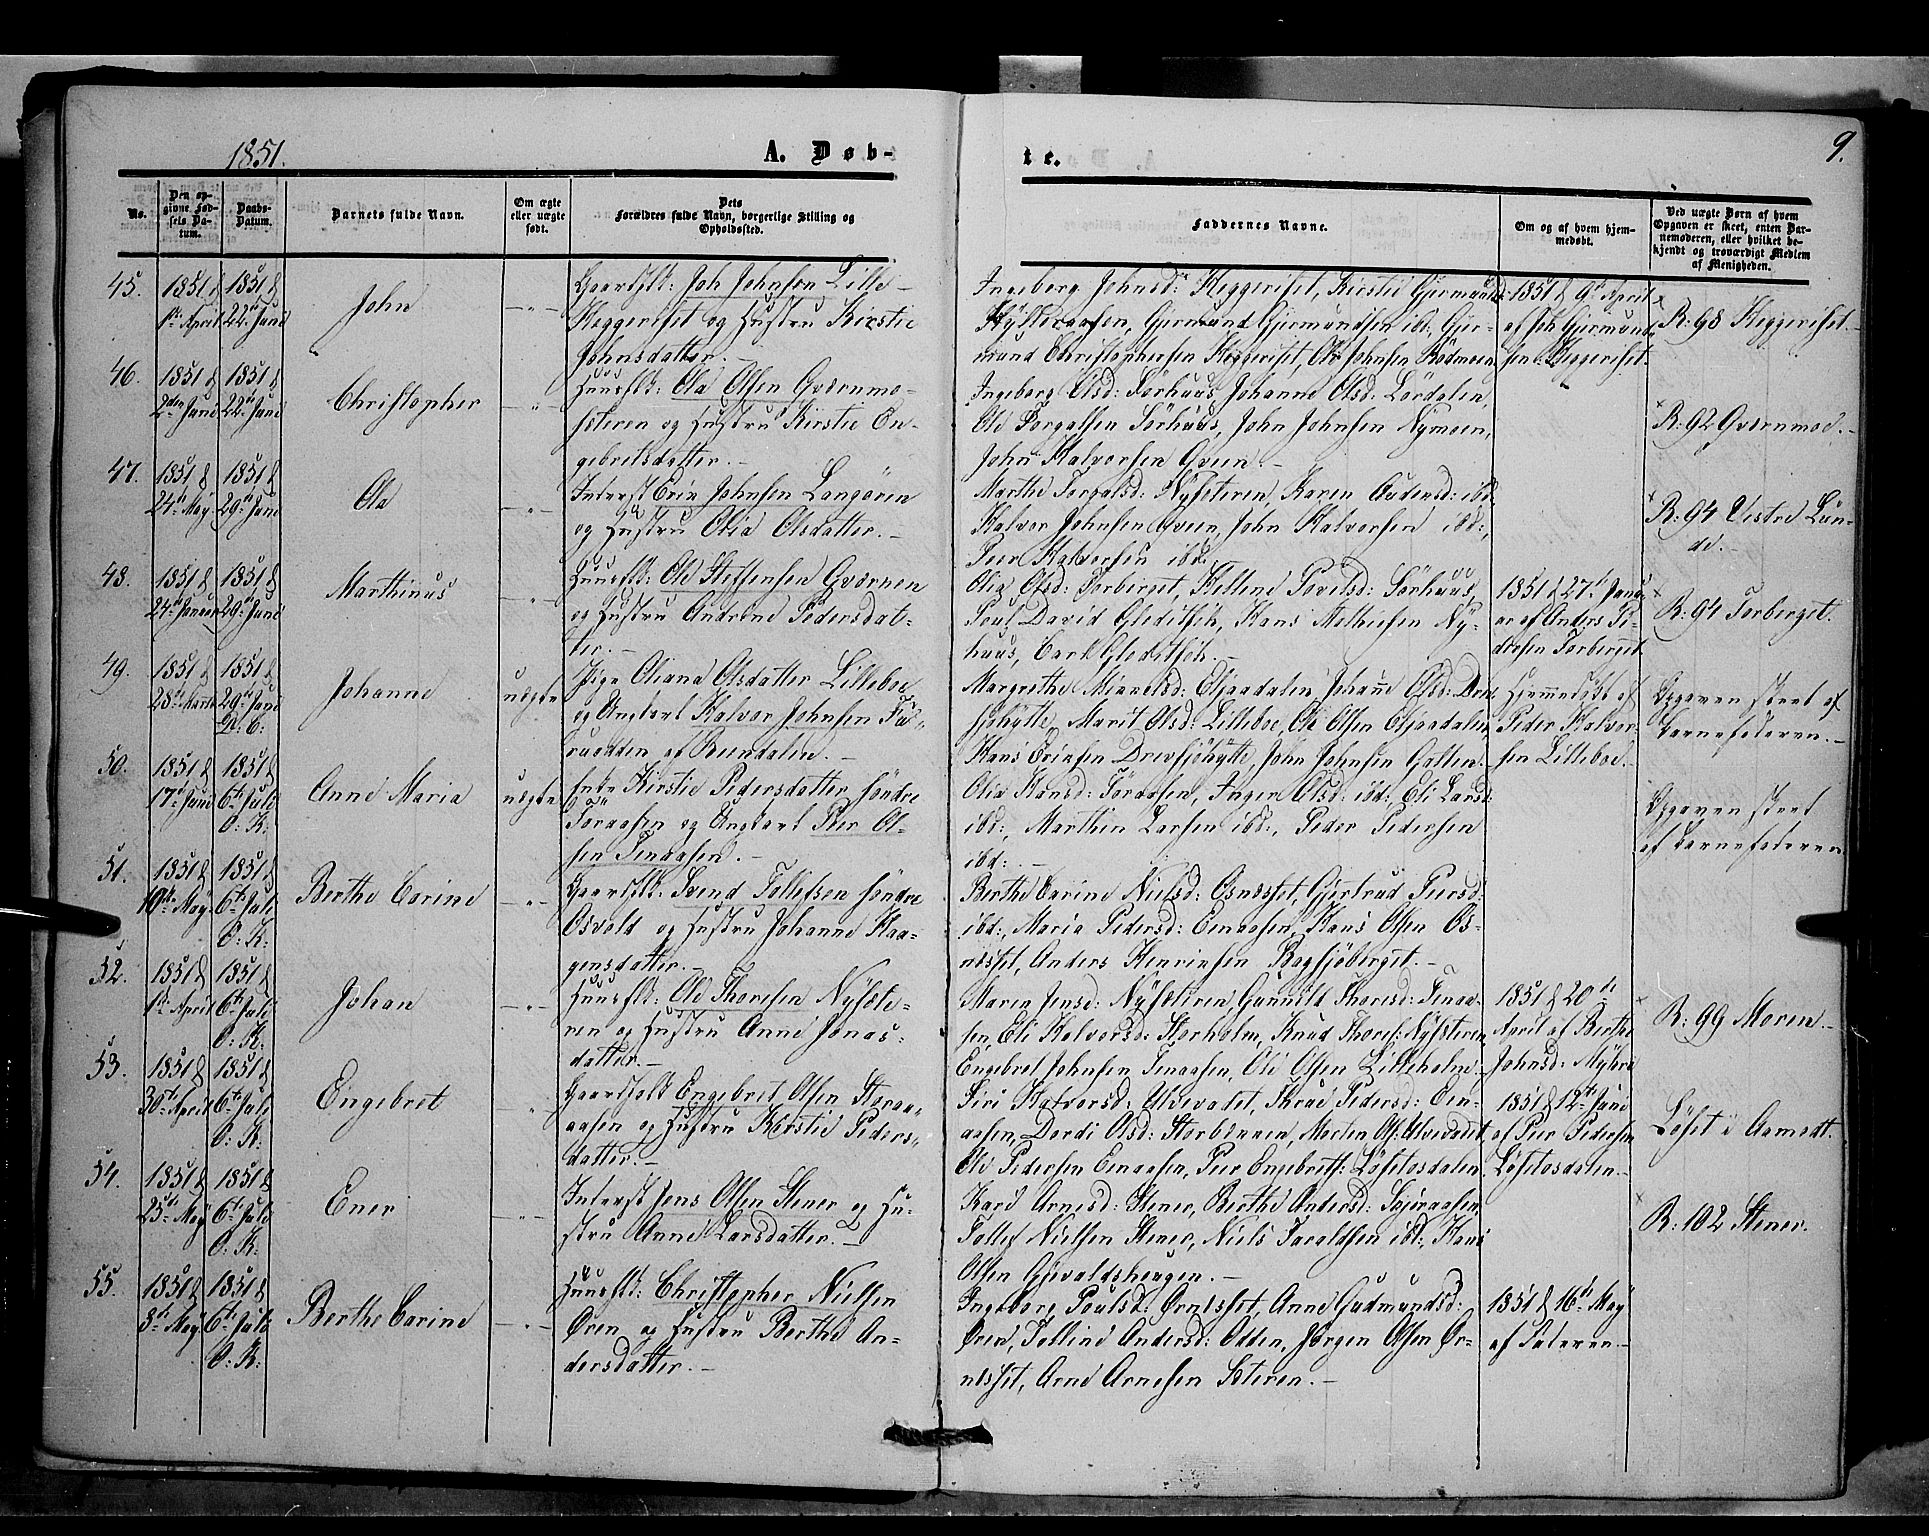 1851.
A. Døb-
te.
9.
No.
Den op-
givne Fød-
sels Da-
tum.
Daabs-
Datum.
Barnets fulde Navn.
Om ægte
eller uægte
født.
Dets
Forældres fulde Navn, borgerlige Stilling og
Opholdssted.
Faddernes Navne.
Om og af hvem hjem-
medøbt.
Ved uægte Børn af hvem
Opgaven er skeet, enten Bar-
nemoderen, eller hvilket be-
kjendt og troværdigt Medlem
af Menigheden.
45.
1851 d
1ste April
1851 d
22de Juni
John
Gaardfolk: Joh Johnsen Lille
Heggeriset og Hustru Kirstie
Johnsdatter.
Ingeborg Johnsd: Heggeriset, Kirstie Gjermunds:
Gjermund Gjermundsen ibd:, Gjer-
mund Christophersen Heggeriset, Ole Johnsen Rødmoen
1851 d 9de April
af Joh Gjermund
sen Heggeriset.
R: 98 Heggeriset.
46.
1851 d
2den Juni
1851 d
22de Juni
Christopher
Huusfolk: Ola Olsen Qværnmo-
sæteren og Hustru Kirstie En-
gebretsdatter.
Ingeborg Olsd: Sørhuus, Johanne Olsd: Lørdalen,
Ole Torgalsen Sørhuus, John Johnsen Nymoen,
John Halvorsen Qveen.
R: 92 Qværnmoe.
47.
1851 d
24de May
1851 d
29de Juni
Ola
Inderst Erik Johnsen Langøren
og Hustru Olea Olsdatter.
Marthe Torgalsd: Nysæteren, Karen Audensd: ibd:
Halvor Johnsen Qveen, John Halvorsen ibd:,
Peer Halvorsen ibd:
R: 94 Vestre Lun-
de.
48.
1851 d
24de Januar
1851 d
29de Juni
Marthinus
Huusfolk: Ole Steffensen Qværnen
og Hustru Andrine Pedersdat-
ter.
Olea Olsd: Torberget, Helline Povelsd: Sørhuus,
Poul David Gleditsch, Hans Mathiesen Ny-
huus, Carl Gleditsch.
1851 d 27de Janu-
ar af Anders Pe-
dersen Torberget
R: 94 Torberget.
49.
1851 d
28de Marts
1851 d
29de Juni
D: C:
Johanne
uægte
Pige Oliana Olsdatter Lilleboe
og Ungkarl Halvor Johnsen Fu-
ruodden af Rendalen.
Margrethe Mikkelsd: Eljaadalen, Johanne Olsd: Drev-
sjøhytte, Marit Olsd: Lilleboe, Ole Olsen Eljaadalen
Hans Eriksen Drevsjøhytte, John Johnsen Galten
Hjemmedøbt af
Peder Halvor-
sen Lilleboe.
Opgaven skeet af
Barnefaderen.
50.
1851 d
17de Juni
1851 d
6te Juli
O: K:
Anne Maria
uægte
Enke Kirstie Pedersdatter søndre
Føraasen og Ungkarl Peer Ol-
sen Trnaasen.
Olea Hansd: Føraasen, Inger Olsd: ibd:, Eli Larsd:
ibd:, Marthin Larsen ibd:, Peder Pedersen
ibd:
Opgaven skeet
af Barnefaderen
51.
1851 d
10de May
1851 d
6te Juli
O: K:
Berthe Carine
Gaardfolk: Svend Tollefsen søndre
Osvold og Hustru Johanne Haa-
gensdatter.
Berthe Carine Nielsd: Osneset, Gjertrud Peersd:
ibd:, Maria Pedersd: Enaasen, Hans Olsen Os-
neset, Anders Henriksen Bagsjøberget.
52.
1851 d
1ste April
1851 d
6te Juli
O: K:
Johan
Huusfolk: Ole Thoresen Nysæte-
ren og Hustru Anne Jonas-
datter.
Maren Jensd: Nysæteren, Gunnild Thoresd:
sen, Eli Halvorsd: Storholm, Knud Thores: Nysæteren
Engebret Johnsen, Ole Olsen Lilleholm
1851 d 20de
April af Berthe
Johnsd:
R: 99 Moren
53.
1851 d
30te April
1851 d
6te Juli
O: K:
Engebret
Gaardfolk Engebret Olsen Storaa-
aasen og Hustru Kirstie Peders-
datter.
Siri Halvorsd: Ulvevadet, Pedersd: En-
aasen, Dordi Olsd: Storbækken, Morten Ols: Ulvevadet
Ole Pedersen Enaasen, Peer Engebrets: Løsetosdalen
1851 d 12te Juni
af Peer Pedersen
Løsetosdalen
Løset i Aamodt.
54.
1851 d
25de May
1851 d
6te Juli
O: K:
Ener
Inderst Jens Olsen Stener og Hu-
stru Anne Larsdatter.
Kari Arnesd: Stener, Berthe Andersd: Skjæraasen,
Tollef Nielsen Stener, Niels Taraldsen ibd:, Hans
Olsen Gjevaldshaugen.
R: 102 Stener.
55.
1851 d
3de May
1851 d
6te Juli
O: K:
Berthe Carine
Huusfolk: Christopher Nielsen
Øren og Hustru Berthe An-
dersdatter.
Ingeborg Poulsd: Ørneset, Anne Gudmundsd:
Øren,Ælline Andersd: Odden, Jørgen Olsen Ør-
neset, Arne Arnesen Sæteren.
1851 d 16de May
af Faderen